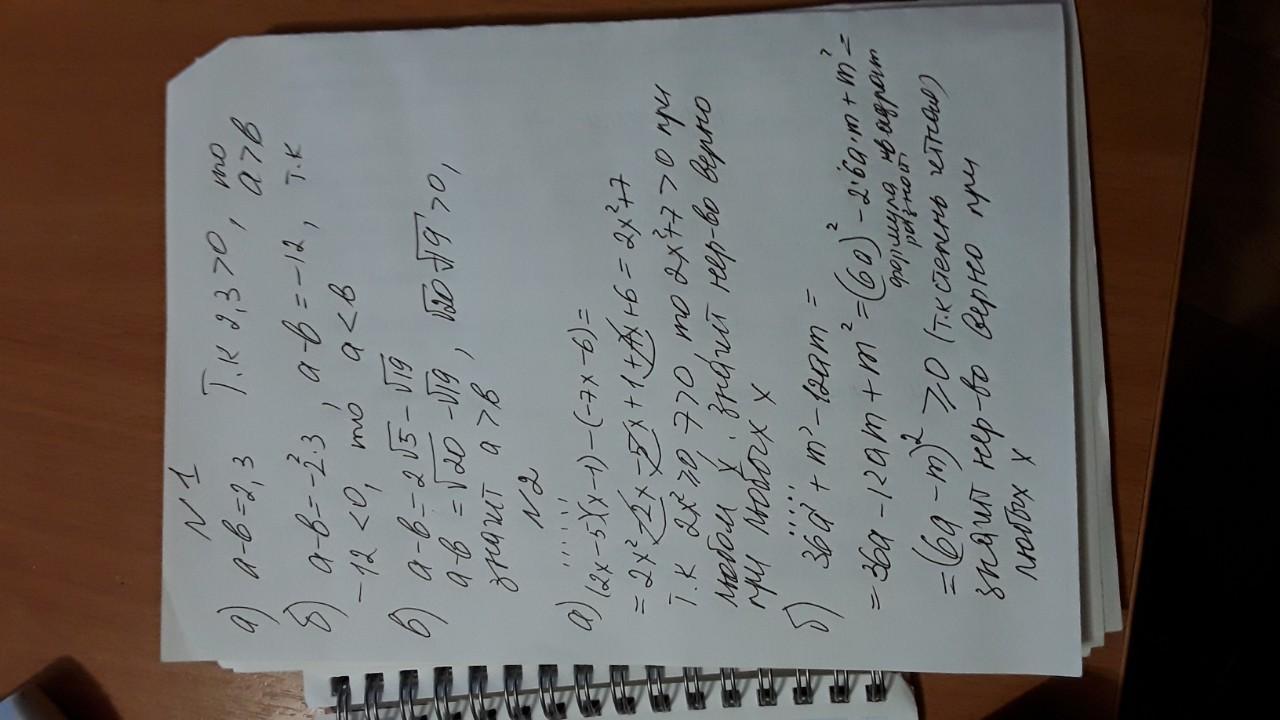 N 1
а) a-b=2,3 Т.к 2,3>0, то a>b
б) a-b=-2²·3, a-b=-12, т.к
-12<0, то a<b
в) a-b=2√5-√19
a-b=√20-√19, √20-√19>0,
значит a>b
N2
а) (2x-5)(x-1)-(-7x-6)=
=2x²-2x-5x+1+7x+6=2x²+7
Т.к 2x²≥0 7>0 то 2x²+7>0 при
любом x, значит нер-во верно
при любых x
б) 36a²+m²-12am=
=36a-12am+m²=(6a)²-2·6a·m+m²=
формула квадрат
разности
=(6a-m)²≥0 (т.к степень чётная)
значит нер-во верно при
любых x